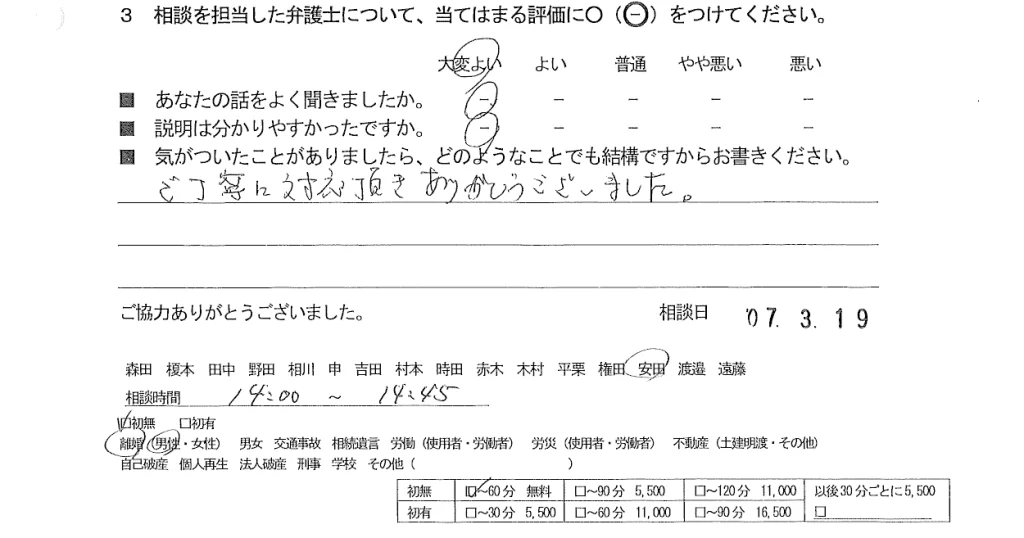 3 相談を担当した弁護士について、当てはまる評価に○（㊀）をつけてください。
大変よい よい 普通 やや悪い 悪い
■ あなたの話をよく聞きましたか。 － － － － －
■ 説明は分かりやすかったですか。 － － － － －
■ 気がついたことがありましたら、どのようなことでも結構ですからお書きください。
ご丁寧に対応頂きありがとうございました。
ご協力ありがとうございました。 相談日 '07. 3. 19
森田 榎本 田中 野田 相川 申 吉田 村本 時田 赤木 木村 平栗 権田 安田 渡邉 遠藤
相談時間 14:00 ~ 14:45
☑初無 □初有
離婚（男性・女性） 男女 交通事故 相続遺言 労働（使用者・労働者） 労災（使用者・労働者） 不動産（土建明渡・その他）
自己破産 個人再生 法人破産 刑事 学校 その他（ ）
初無 ☑～60分 無料 □～90分 5,500 □～120分 11,000 以後30分ごとに5,500
初有 □～30分 5,500 □～60分 11,000 □～90分 16,500 □